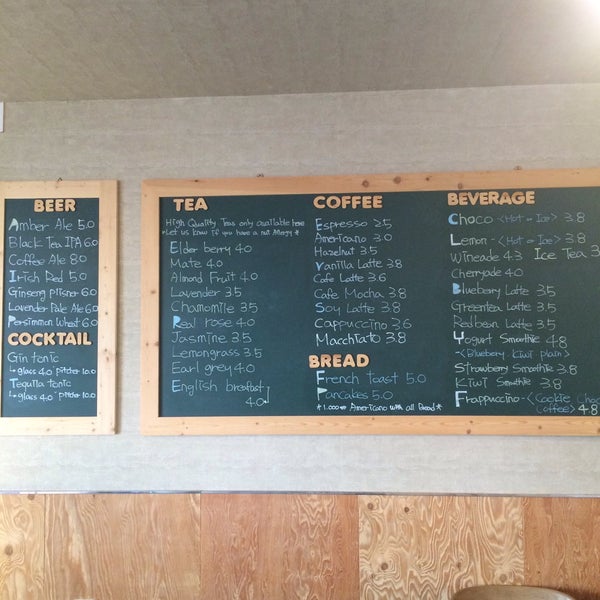 BEER
Amber Ale 5.0
Black Tea IPA 6.0
Coffee Ale 8.0
Irish Red 5.0
Ginseng pilsner 6.0
Lavender Pale Ale 6.0
Persimmon Wheat 6.0
COCKTAIL
Gin tonic
↳ glass 4.0 pitcher 10.0
Tequila tonic
↳ glass 4.0 pitcher 10.0
TEA
High Quality Teas only available here
*Let us know if you have a nut Allergy *
Elder berry 4.0
Mate 4.0
Almond Fruit 4.0
Lavender 3.5
Chamomile 3.5
Real rose 4.0
Jasmine 3.5
Lemongrass 3.5
Earl grey 4.0
English breafast
4.0
COFFEE
Espresso 2.5
Americano 3.0
Hazelnut 3.5
Vanilla Latte 3.8
Cafe Latte 3.6
Cafe Mocha 3.8
Soy Latte 3.8
Cappuccino 3.6
Macchiato 3.8
BREAD
French toast 5.0
Pancakes 5.0
* 1.000 Americano with all Bread *
BEVERAGE
Choco <Hot or Ice> 3.8
Lemon - <Hot or Ice> 3.8
Wineade 4.3 Ice Tea 3
Cherryade 4.0
Blueberry Latte 3.5
Greentea Latte 3.5
Redbean Latte 3.5
Yogurt Smoothie 4.8
<Blueberry Kiwi plain>
Strawberry Smoothie 4.8
Kiwi Smoothie 4.8
Frappuccino - <Cookie Choc
Coffee> 4.8